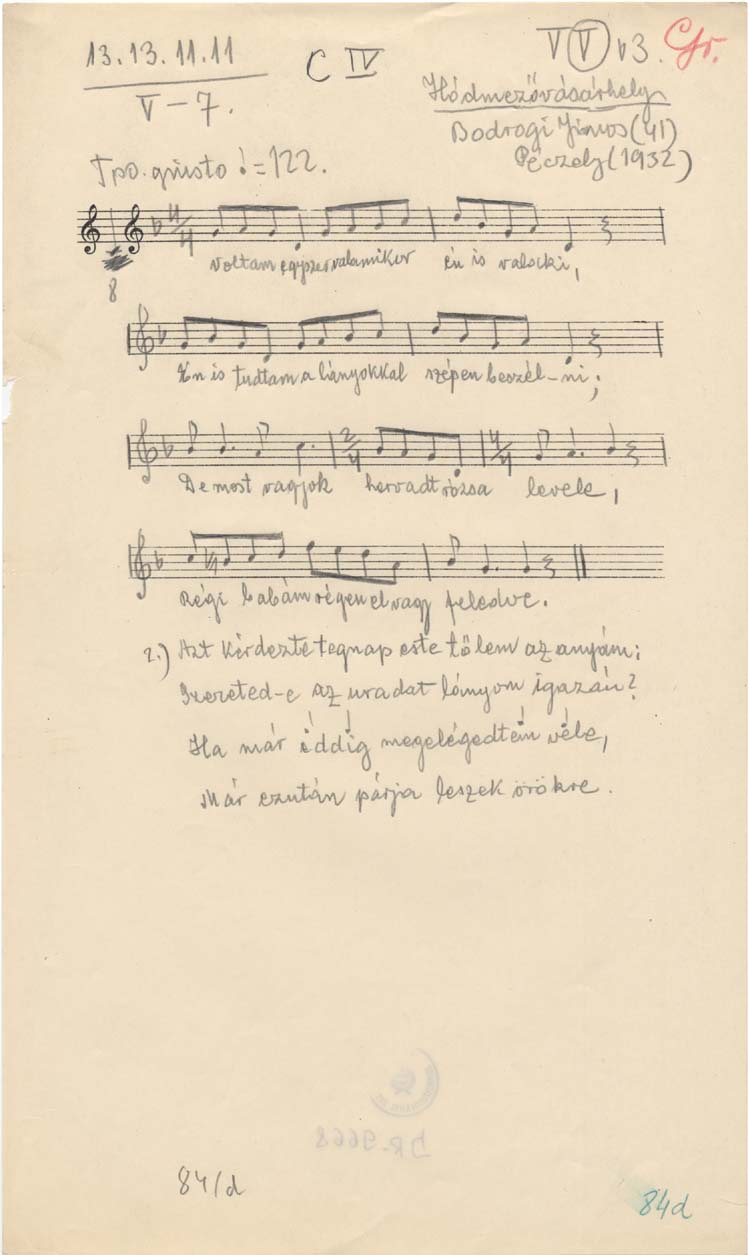 13.13.11.11
V-7.
C IV
V V b3. Gr.
Hódmezővásárhely
Bodrogi János (41)
Péczely (1932)
Tpo. giusto ♩=122.
4/4
Voltam egyszer valamikor én is valaki,
8
Én is tudtam a lányokkal szépen beszél-ni;
2/4 4/4
De most vagyok hervadt rózsa levele,
4/4
Régi babám régen el vagy feledve.
2.) Azt kérdezte tegnap este tőlem az anyám:
Szereted-e az uradat lányom igazán?
Ha már eddig megelégedtem véle,
Már ezután párja leszek örökre.
DR. 9668
84/d
84d